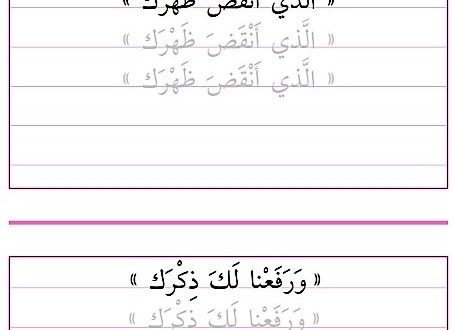 « الَّذي أَنْقَضَ ظَهْرَك »
« الَّذي أَنْقَضَ ظَهْرَك »
« الَّذي أَنْقَضَ ظَهْرَك »
« وَرَفَعْنا لَكَ ذِكْرَك »
« وَرَفَعْنا لَكَ ذِكْرَك »